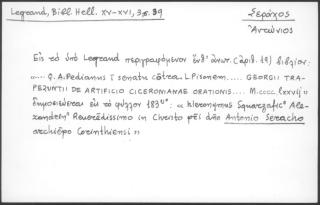 Legrand, Bibl. Hell. XV-XVI, 3, σ. 39
Σεράχος
Ἀντώνιος
Εἰς τὸ ὑπὸ Legrand περιγραφόμενον ἐνθ' ἀνωτ. (ἀριθ. 19) βιβλίον:
«.... Q. A. Pedianus ī senatu cōtra L. Pisonem.... GEORGII TRA-
PEZUNTII DE ARTIFICIO CICERONIANAE ORATIONIS.... M.cccc.lxxvij»
δημοσιεύεται εἰς τὸ φύλλον 183: «hieronymus Squarzafic' Ale-
xandrin' Reverēdissimo in Christo pēi dn̄o Antonio Seracho
archiēpo Corinthiensi»